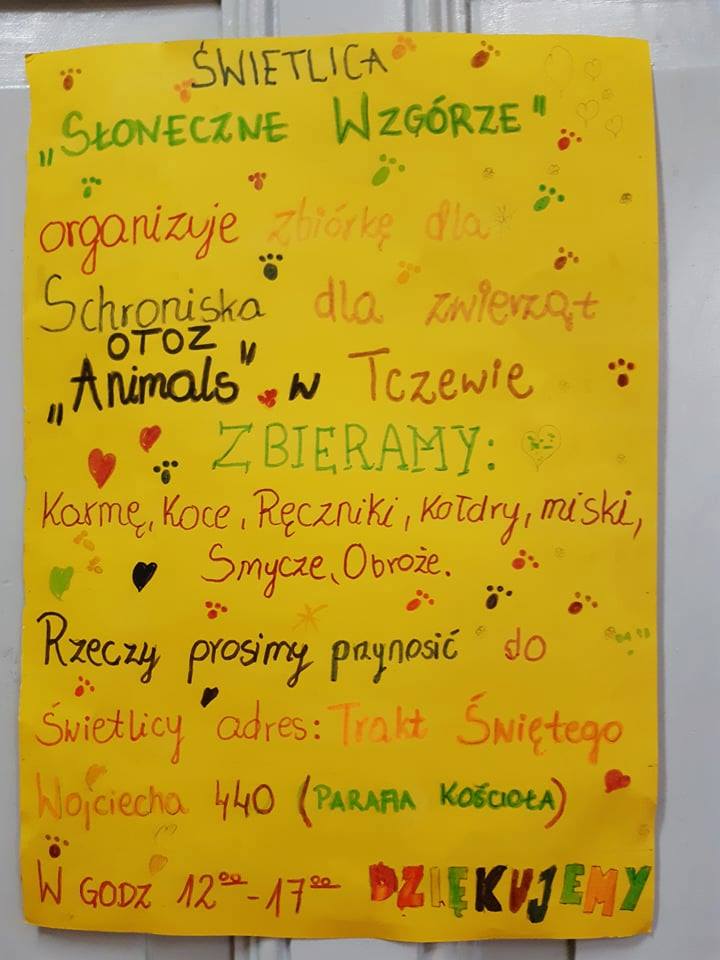 ŚWIETLICA
„SŁONECZNE WZGÓRZE"
organizuje zbiórkę dla
Schroniska dla zwierząt
OTOZ
„Animals" w Tczewie
ZBIERAMY:
Karmę, Koce, Ręczniki, Kołdry, miski,
Smycze, Obroże.
Rzeczy prosimy przynosić do
Świetlicy adres: Trakt Świętego
Wojciecha 440 (PARAFIA KOŚCIOŁA)
W GODZ 12⁰⁰-17⁰⁰ DZIĘKUJEMY